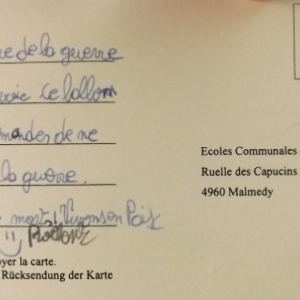 re de la guerre
voie ce ballon
mander de ne
la guerre.
mort! Vivons en Paix
Ecoles Communales
Ruelle des Capucins
4960 Malmedy
yer la carte.
Rücksendung der Karte